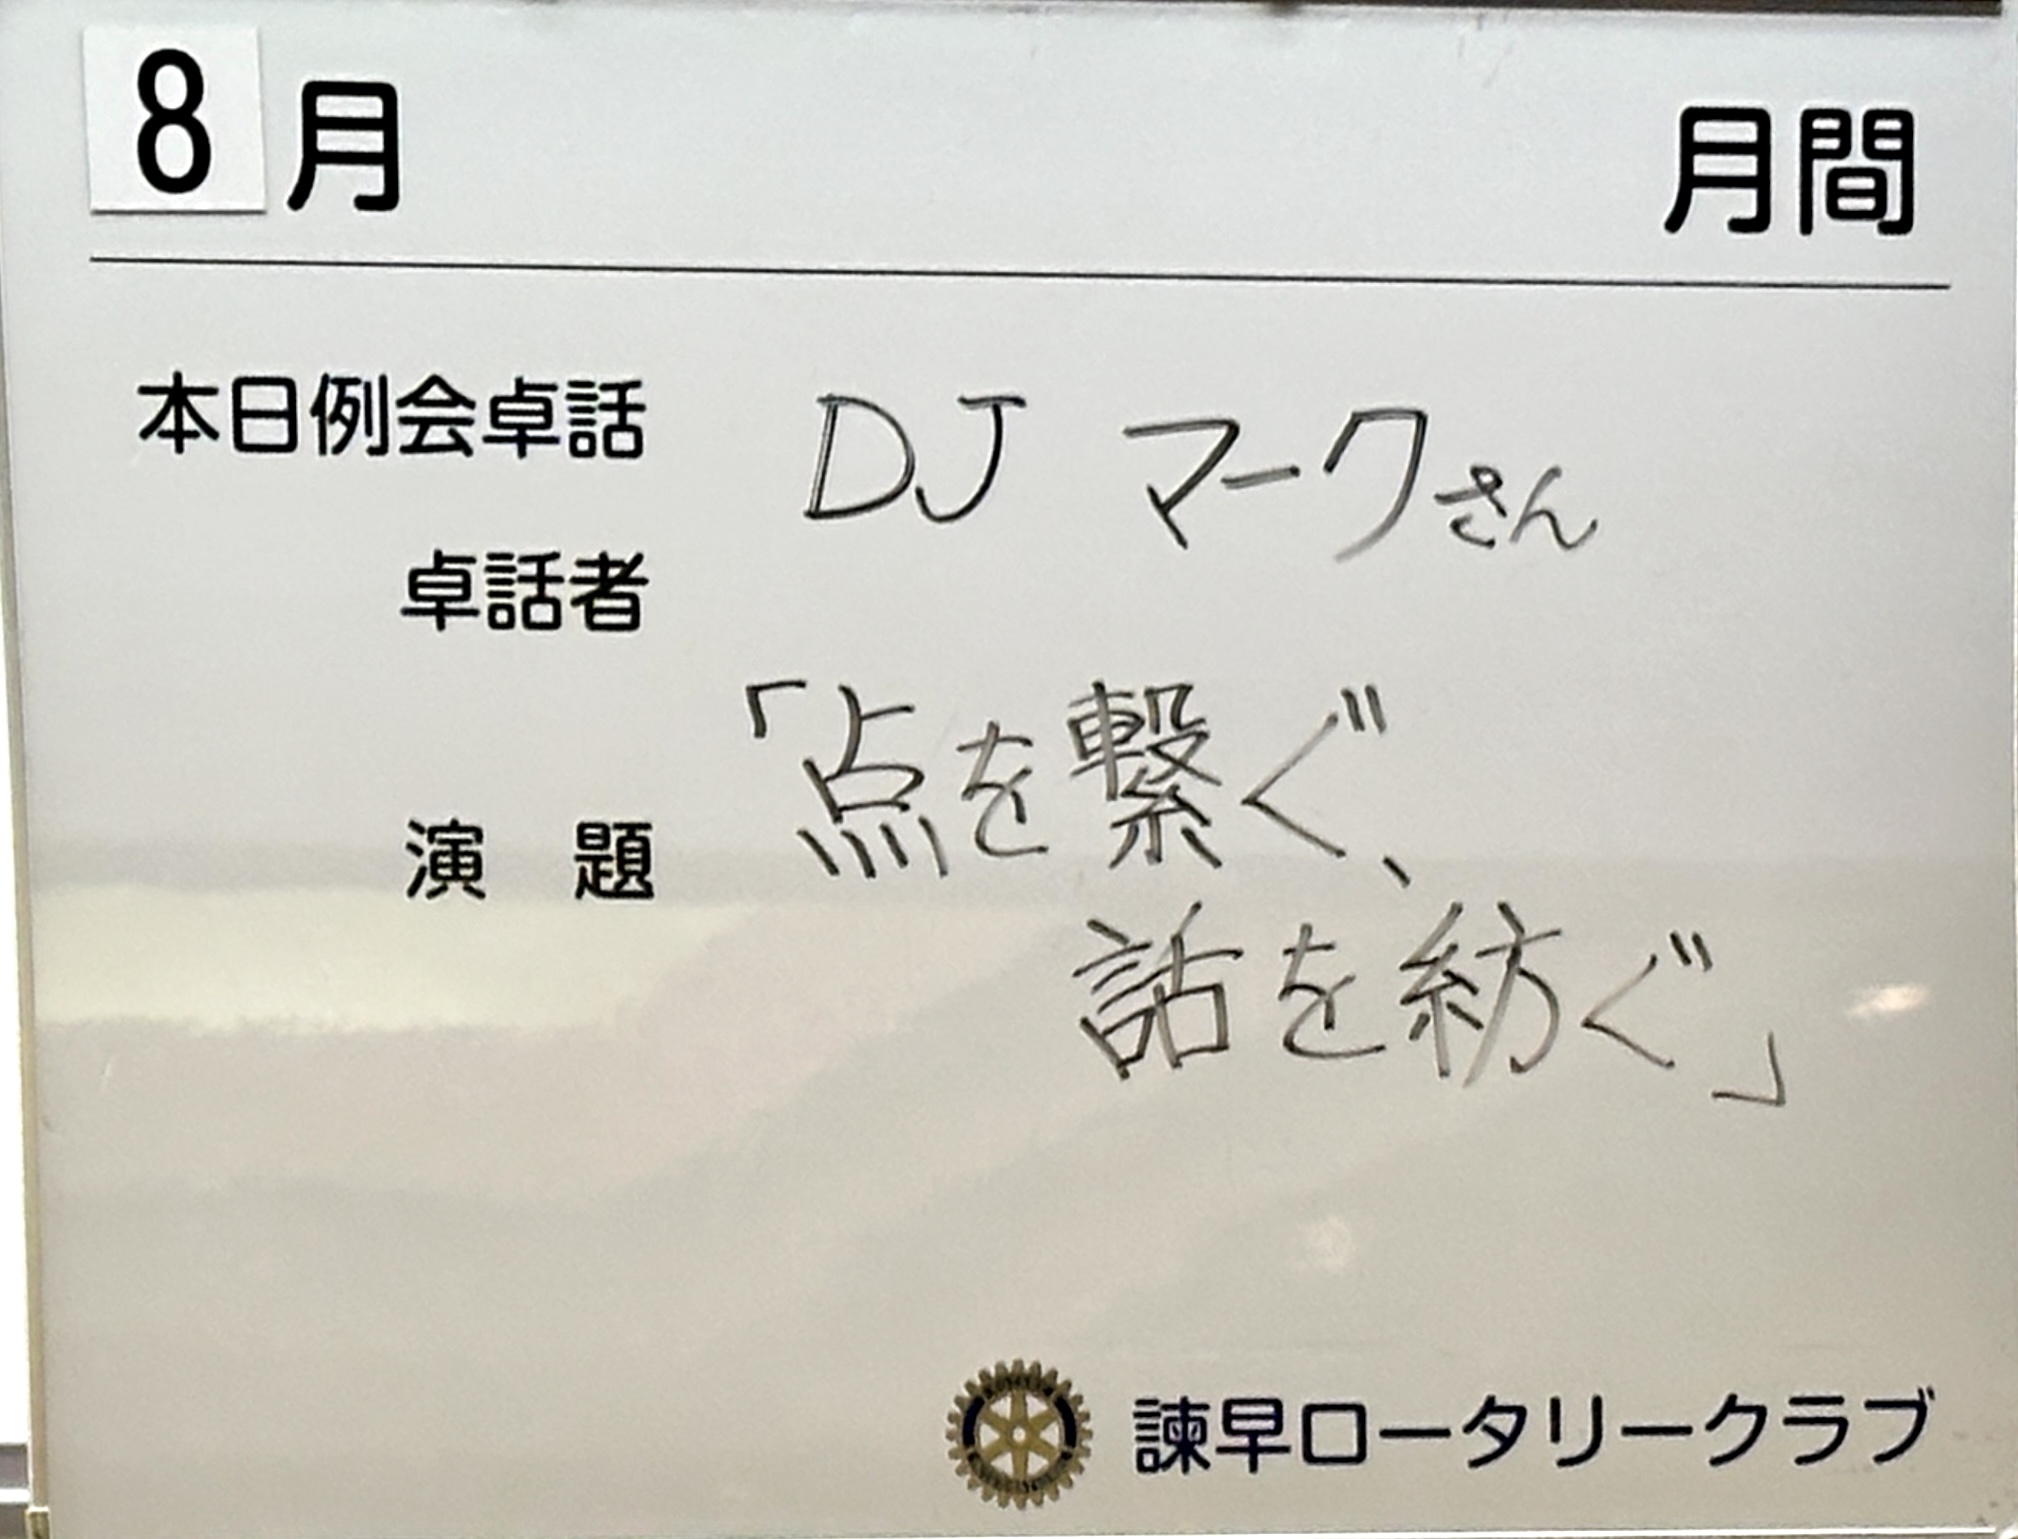 8月 月間
本日例会卓話 DJ マークさん
卓話者
演 題 「点を繋ぐ、
話を紡ぐ」
諫早ロータリークラブ